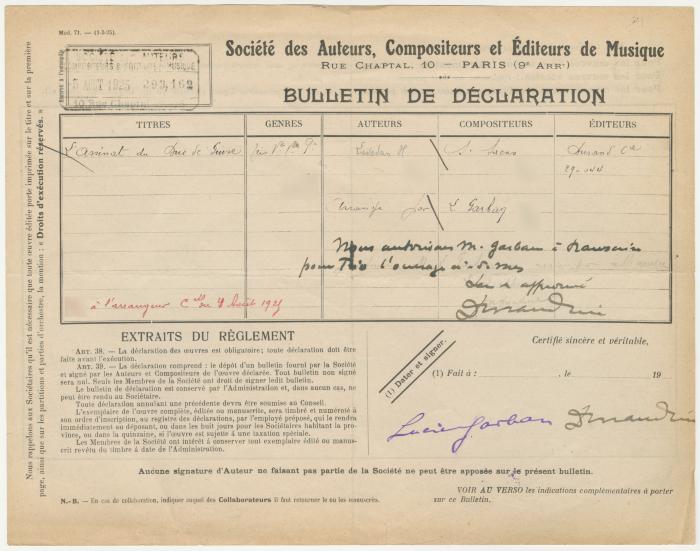 Mod. 71. — (1-3-25).
Société des Auteurs, Compositeurs et Éditeurs de Musique
RUE CHAPTAL, 10 — PARIS (9e ARRt)
BULLETIN DE DÉCLARATION
AUTEURS
5 AOUT 1925 293,162
10 Rue Chaptal
TITRES GENRES AUTEURS COMPOSITEURS ÉDITEURS
L'Assinat du Duc de Guise Lavedan H. S. Saens Durand Cie
29-044
Arrangé par L Garban
Nous autorisons M. Garban à transcrire
pour Trio l'ouvrage ci-dessus
Lu & approuvé
Durand
à l'arrangeur Cel du 4 Août 1925
EXTRAITS DU RÈGLEMENT
ART. 38. — La déclaration des œuvres est obligatoire; toute déclaration doit être
faite avant l'exécution.
ART. 39. — La déclaration comprend : le dépôt d'un bulletin fourni par la Société
et signé par les Auteurs et Compositeurs de l'œuvre déclarée. Tout bulletin non signé
sera nul. Seuls les Membres de la Société ont droit de signer ledit bulletin.
Le bulletin de déclaration est conservé par l'Administration et, dans aucun cas, ne
peut être rendu au Sociétaire.
Toute déclaration annulant une précédente devra être soumise au Conseil.
L'exemplaire de l'œuvre complète, éditée ou manuscrite, sera timbré et numéroté à
son ordre d'inscription, au registre des déclarations, par l'employé préposé, qui le rendra
immédiatement au déposant, ou dans les huit jours pour les Sociétaires habitant la pro-
vince, ou dans la quinzaine, si l'œuvre est sujette à une taxation spéciale.
Les Membres de la Société ont intérêt à conserver tout exemplaire édité ou manus-
crit revêtu du timbre à date de l'Administration.
Certifié sincère et véritable,
(1) Dater et signer.
(1) Fait à : , le 19
Lucien Garban Durand
Aucune signature d'Auteur ne faisant pas partie de la Société ne peut être apposée sur le présent bulletin.
N.-B. — En cas de collaboration, indiquer auquel des Collaborateurs il faut retourner le ou les manuscrits.
VOIR AU VERSO les indications complémentaires à porter
sur ce Bulletin.
Nous rappelons aux Sociétaires qu'il est nécessaire que toute œuvre éditée porte imprimée sur le titre et sur la première
page, ainsi que sur les partitions et parties d'orchestre, la mention : « Droits d'exécution réservés. »